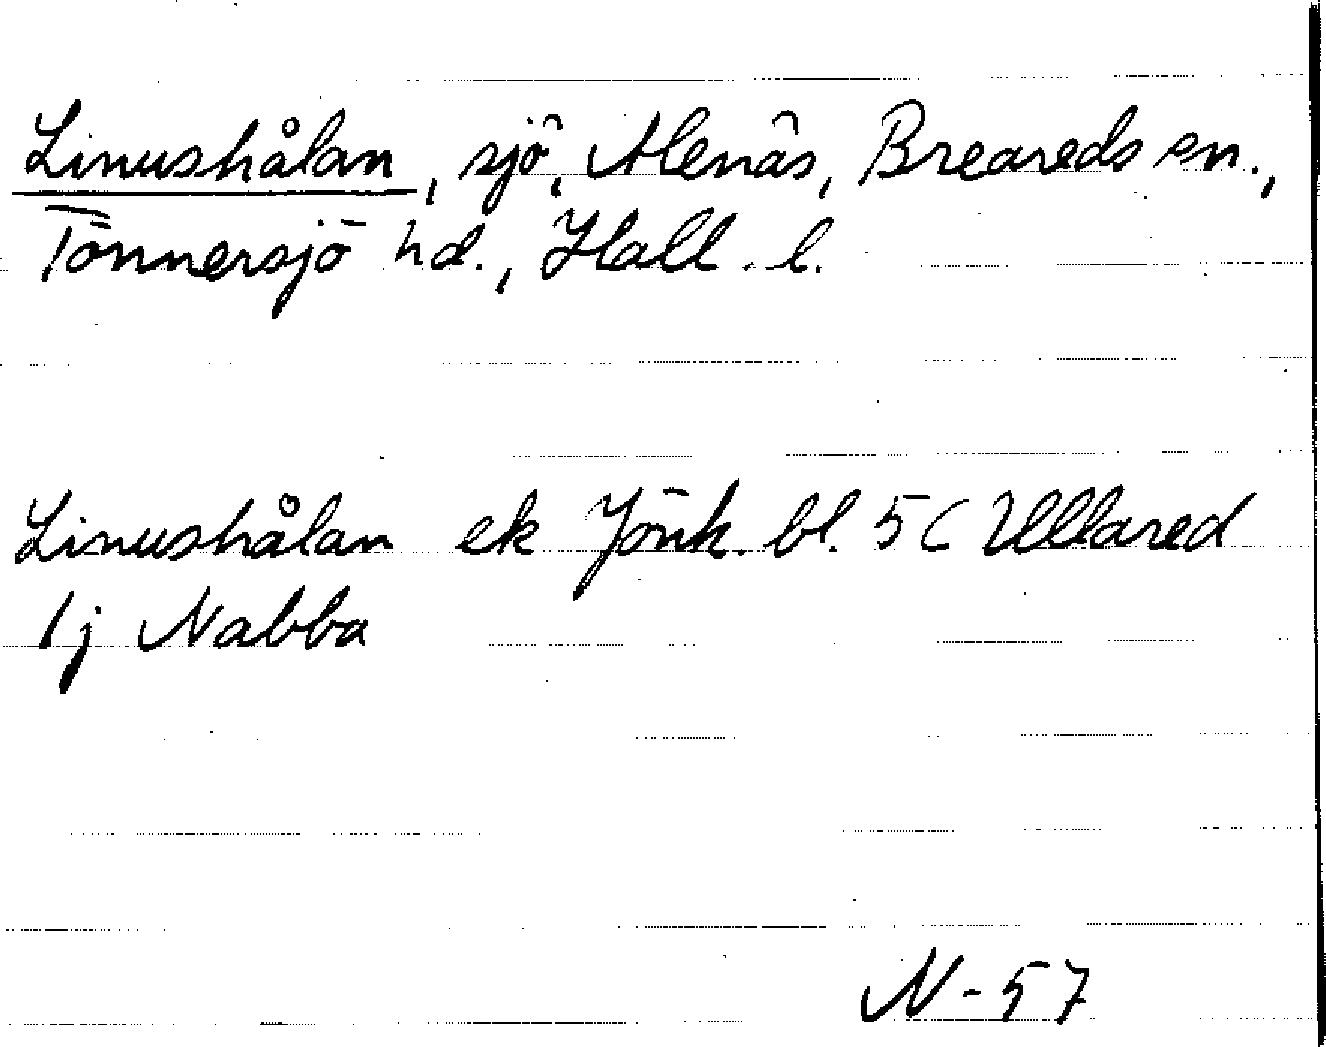 Linushålan, sjö, Alenäs, Breareds sn.,
Tönnersjö hd., Hall. l.
Linushålan ek Jönk. bl. 5C Ullared
1j Nabba
N-57